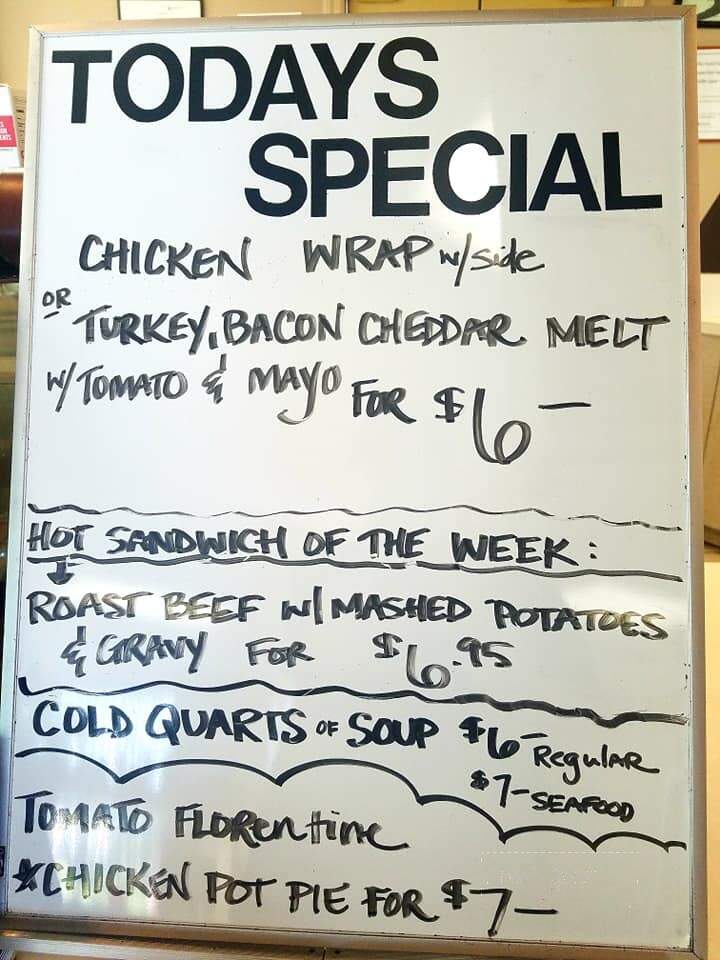 TODAYS
SPECIAL
CHICKEN WRAP w/side
OR
TURKEY, BACON CHEDDAR MELT
w/ TOMATO & MAYO FOR $6-
HOT SANDWICH OF THE WEEK:
ROAST BEEF w/ MASHED POTATOES
& GRAVY FOR $6.95
COLD QUARTS OF SOUP $6- RegulAR
$7- SEAFOOD
TOMATO FLORentine
*CHICKEN POT PIE FOR $7-